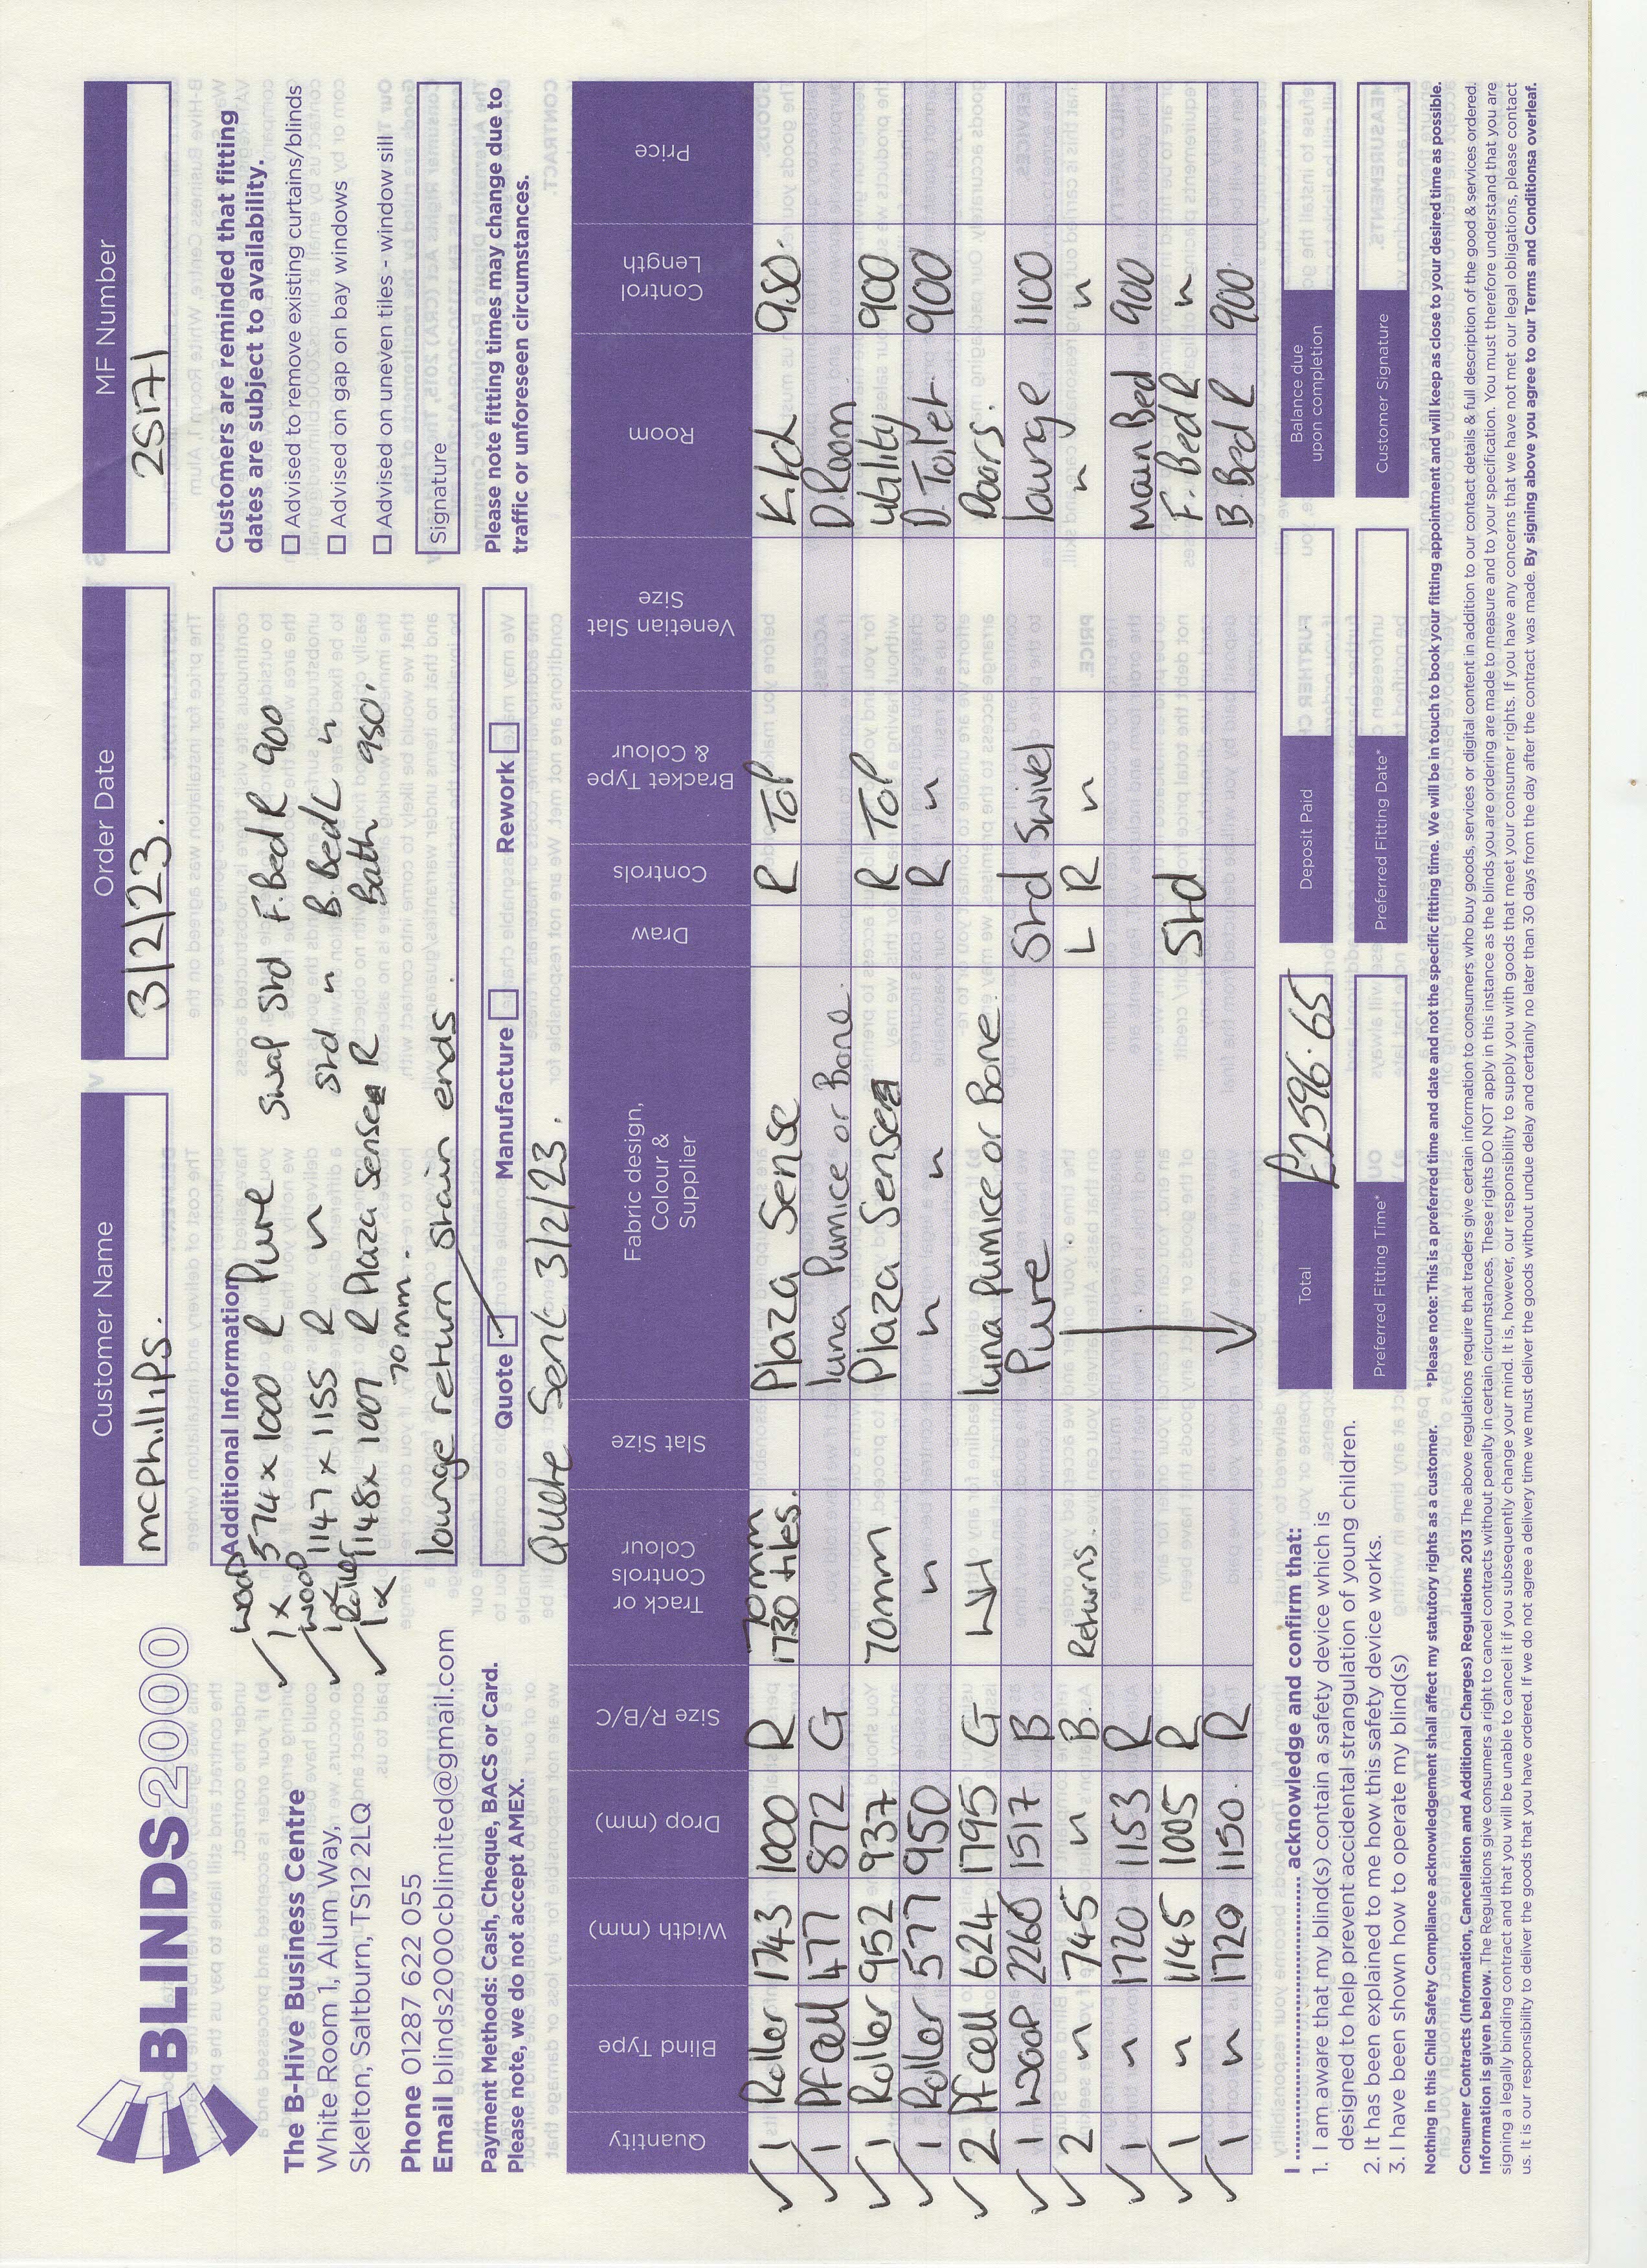 BLINDS2000
The B-Hive Business Centre
White Room 1, Alum Way,
Skelton, Saltburn, TS12 2LQ
Phone 01287 622 055
Email blinds2000cblimited@gmail.com
Payment Methods: Cash, Cheque, BACS or Card.
Please note, we do not accept AMEX.
Customer Name
mcPhilliPs.
Order Date
3/2/23.
MF Number
25171
Additional Information
wood 1x 574 x 1000 R Pure Swal Std F.Bed R 900
wood 1x 1147 x 1155 R " Std " B.Bed L "
Roller 1x 1148 x 1007 R Plaza Sense R Bath 950.
70mm.
lounge return strain ends.
Quote ✓ Manufacture Rework
Quote Sent 3/2/23.
Customers are reminded that fitting
dates are subject to availability.
Advised to remove existing curtains/blinds
Advised on gap on bay windows
Advised on uneven tiles - window sill
Signature
Please note fitting times may change due to
traffic or unforeseen circumstances.
Quantity Blind Type Width (mm) Drop (mm) Size R/B/C Track or Controls Colour Slat Size Fabric design, Colour & Supplier Draw Controls Bracket Type & Colour Venetian Slat Size Room Control Length Price
1 Roller 1743 1000 R 70mm 1730 tiles. Plaza Sense R ToP Kitch 950.
1 Pfcell 477 872 G luna Pumice or Bone. D.Room
1 Roller 952 937 70mm Plaza Sense R ToP utility 900
1 Roller 577 950 " " " R " D.Toilet 900
2 Pfcell 624 1795 G WH luna Pumice or Bone. Doors.
1 wood 2260 1517 B Pure Std Swivel lounge 1100
2 " 745 " B Returns. L R " " "
1 " 1720 1153 R main Bed 900
1 " 1145 1005 R Std F.Bed R "
1 " 1720 1150. R B.Bed R 900.
I .................... acknowledge and confirm that:
1. I am aware that my blind(s) contain a safety device which is
designed to help prevent accidental strangulation of young children.
2. It has been explained to me how this safety device works.
3. I have been shown how to operate my blind(s)
Total £2596.65
Deposit Paid
Balance due upon completion
Preferred Fitting Time*
Preferred Fitting Date*
Customer Signature
Nothing in this Child Safety Compliance acknowledgement shall affect my statutory rights as a customer. *Please note: This is a preferred time and date and not the specific fitting time. We will be in touch to book your fitting appointment and will keep as close to your desired time as possible.
Consumer Contracts (Information, Cancellation and Additional Charges) Regulations 2013 The above regulations require that traders give certain information to consumers who buy goods, services or digital content in addition to our contact details & full description of the good & services ordered.
Information is given below. The Regulations give consumers a right to cancel contracts without penalty in certain circumstances. These rights DO NOT apply in this instance as the blinds you are ordering are made to measure and to your specification. You must therefore understand that you are
signing a legally binding contract and that you will be unable to cancel it if you subsequently change your mind. It is, however, our responsibility to supply you with goods that meet your consumer rights. If you have any concerns that we have not met our legal obligations, please contact
us. It is our responsibility to deliver the goods that you have ordered. If we do not agree a delivery time we must deliver the goods without undue delay and certainly no later than 30 days from the day after the contract was made. By signing above you agree to our Terms and Conditionsa overleaf.